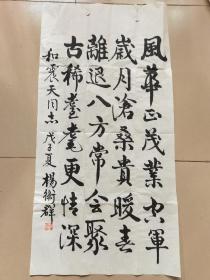 風華正茂業空軍
歲月滄桑貴暖春
離退八方常会聚
古稀耋耄更情深
和震天同志 戊子夏 楊衛群